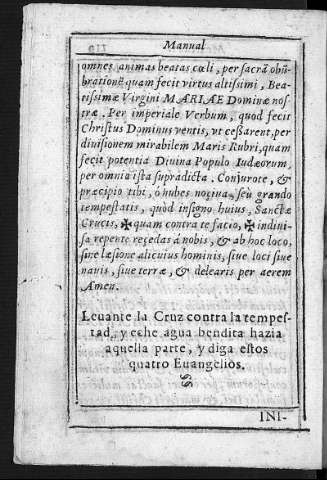 Manual
omnes animas beatas cœli, per sacrã obũ-
brationẽ quam fecit virtus altissimi, Bea-
tissimæ Virgini MARIAE Dominæ nos-
træ. Per imperiale Verbum, quod fecit
Christus Dominus ventis, ut cessarent, per
diuisionem mirabilem Maris Rubri, quam
fecit potentia Diuina Populo Iudæorum,
per omnia ista supradicta. Conjurote, &
præcipio tibi, ô nubes nociua, seu grando
tempestatis, quòd in signo huius, Sanctæ
Crucis, ✠ quam contra te facio, ✠ indiui-
sa repente recedas á nobis, & ab hoc loco,
sine læsione alicuius hominis, siue loci siue
nauis, siue terræ, & delearis per aerem
Amen.
Leuante la Cruz contra la tempes-
tad, y eche agua bendita hazia
aquella parte, y diga estos
quatro Euangelios.
INI-